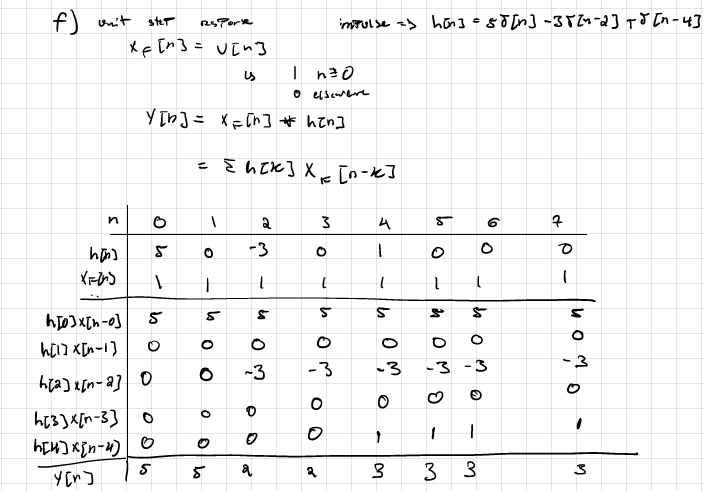 f) unit step response impulse => h[n] = 5δ[n] -3δ[n-2] + δ[n-4]
x_F[n] = U[n]
is 1 n≥0
0 elsewhere
Y[n] = x_F[n] * h[n]
= Σ h[k] x_F[n-k]
n 0 1 2 3 4 5 6 7
h[n] 5 0 -3 0 1 0 0 0
x_F[n] 1 1 1 1 1 1 1 1
h[0]x[n-0] 5 5 5 5 5 5 5 5
h[1]x[n-1] 0 0 0 0 0 0 0 0
h[2]x[n-2] 0 0 -3 -3 -3 -3 -3 -3
h[3]x[n-3] 0 0 0 0 0 0 0 0
h[4]x[n-4] 0 0 0 0 1 1 1 1
Y[n] 5 5 2 2 3 3 3 3